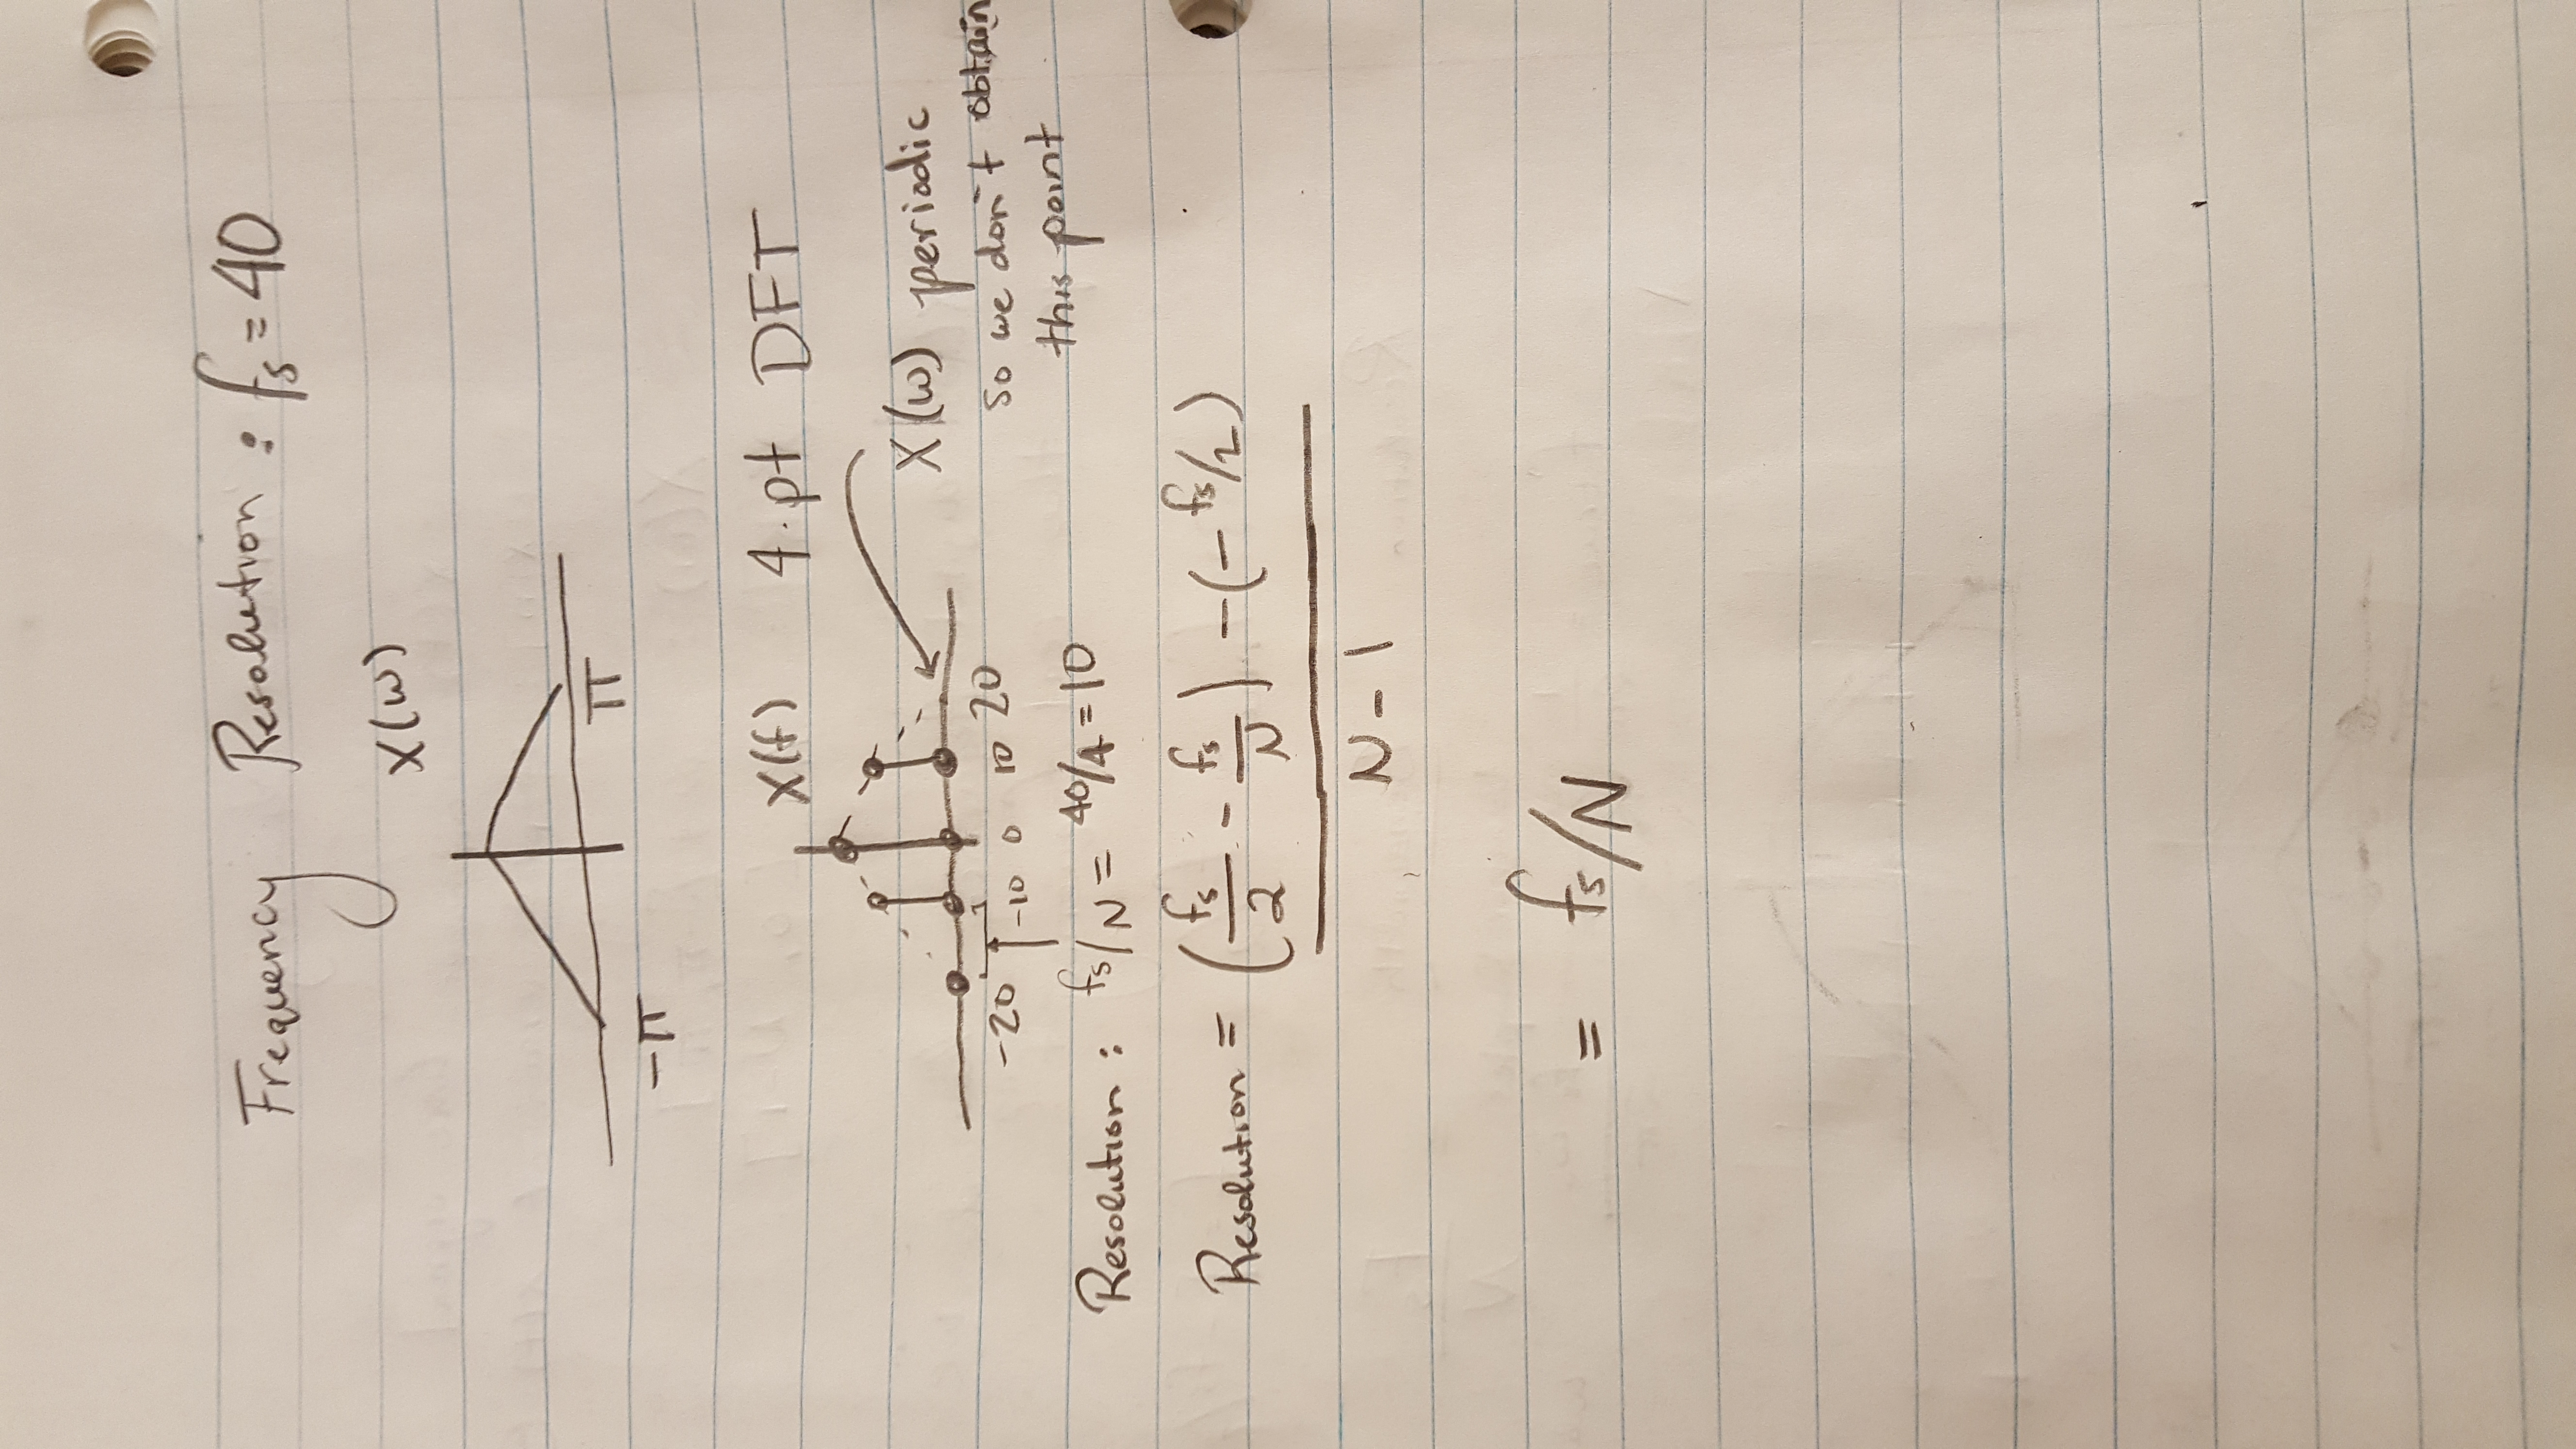 Frequency Resolution : fs = 40
X(w)
-π π
X(f) 4.pt DFT
X(w) periodic
so we don't obtain
this point
-20 -10 0 10 20
Resolution : fs/N = 40/4 = 10
Resolution = (fs/2 - fs/N) - (- fs/2)
N - 1
= fs/N